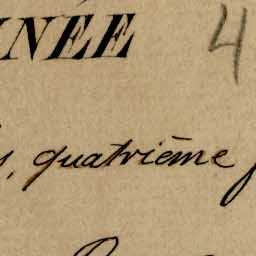 NÉE 4
, quatrième